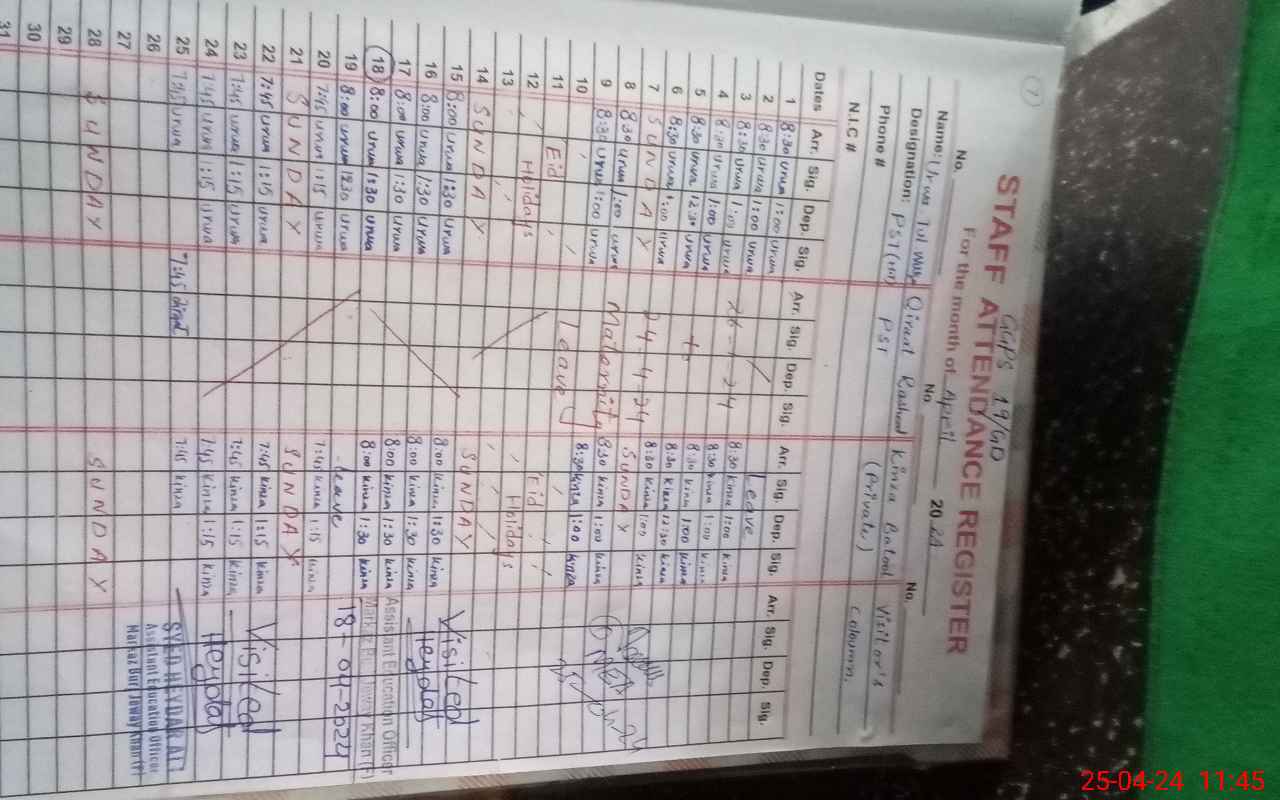 7
GGPS 19/GD
STAFF ATTENDANCE REGISTER
For the month of April 2024
No. No. No.
Name: Urwa Tul Qiraat Rasheed Kinza Batool Visitor's
Designation: PST PST (Private) Coloumn.
Phone #
N.I.C #
Dates Arr. Sig. Dep. Sig. Arr. Sig. Dep. Sig. Arr. Sig. Dep. Sig. Arr. Sig. Dep. Sig.
1 8:30 urwa 1:00 urwa
2 8:30 urwa 1:00 urwa Leave
3 8:30 urwa 1:00 urwa 8:30 kinza 1:00 kinza
4 8:30 urwa 1:00 urwa 26-1-24 8:30 kinza 1:00 kinza
5 8:30 urwa 12:30 urwa to 8:30 kinza 1:00 kinza
6 8:30 urwa 1:00 urwa 8:30 kinza 12:30 kinza
7 SUNDAY 24-4-24 8:30 kinza 1:00 kinza
8 8:30 urwa 1:00 urwa SUNDAY
9 8:30 urwa 1:00 urwa Maternity 8:30 kinza 1:00 kinza
10 Leave 8:30 kinza 1:00 kinza
11 Eid Eid
12 Holidays Holidays
13
14 SUNDAY SUNDAY
15 8:00 urwa 1:30 urwa 8:00 kinza 1:30 kinza Visited
16 8:00 urwa 1:30 urwa 8:00 kinza 1:30 kinza
17 8:00 urwa 1:30 urwa 8:00 kinza 1:30 kinza Assistant Education Officer
18 8:00 urwa 1:30 urwa 8:00 kinza 1:30 kinza
19 8:00 urwa 1:30 urwa Leave 18-04-2024
20 7:45 urwa 1:15 urwa 7:45 kinza 1:15 kinza
21 SUNDAY SUNDAY
22 7:45 urwa 1:15 urwa 7:45 kinza 1:15 kinza Visited
23 7:45 urwa 1:15 urwa 7:45 kinza 1:15 kinza
24 7:45 urwa 1:15 urwa 7:45 kinza 1:15 kinza
25 7:45 urwa 7:45 7:45 kinza SYED HEYDAR ALI
26 Assistant Education Officer
27 Markaz
28 SUNDAY SUNDAY
29
30
31
25-04-24 11:45